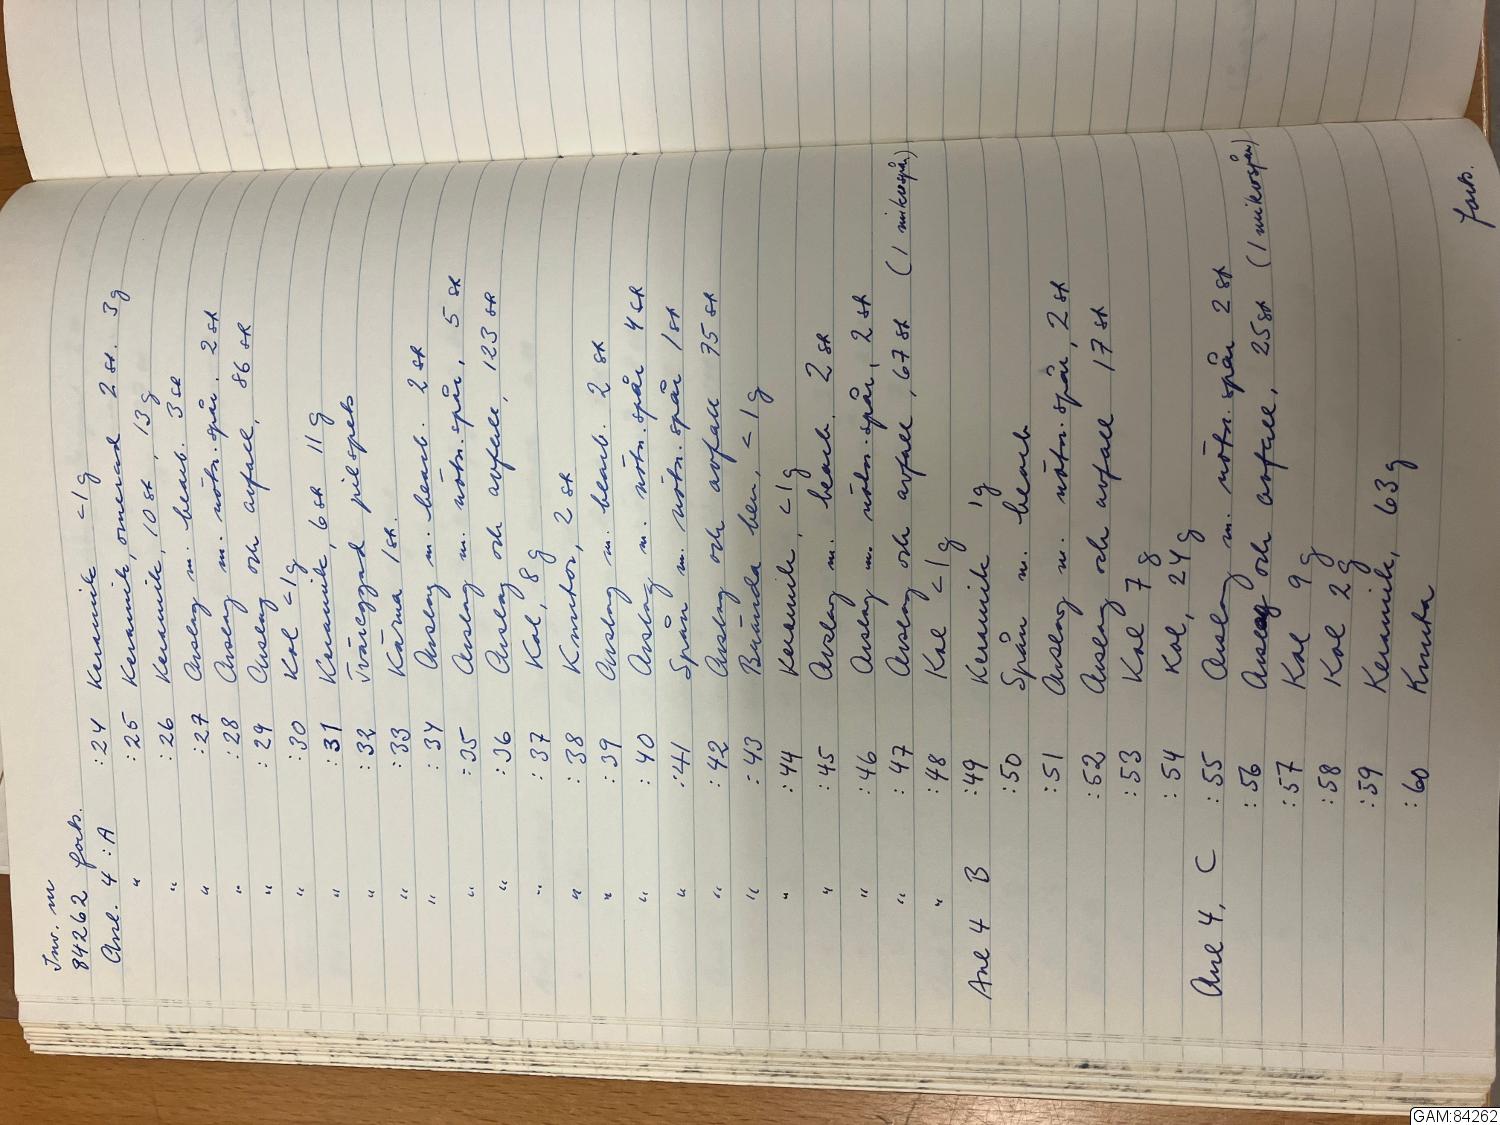 Inv. nr
84262 forts.
Anl. 4 :A :24 Keramik <1g
" :25 Keramik, ornerad 2 st. 3g
" :26 Keramik, 10 st, 13g
" :27 Avslag m. bearb. 3 st
" :28 Avslag m. nötn.spår. 2 st
" :29 Avslag och avfall, 86 st
" :30 Kol <1g
" :31 Keramik, 6 st 11g
" :32 Tväreggad pilspets
" :33 Kärna 1 st.
" :34 Avslag m. bearb. 2 st
" :35 Avslag m. nötn.spår, 5 st
" :36 Avslag och avfall, 123 st
" :37 Kol, 8g
" :38 Knutor, 2 st
" :39 Avslag m. bearb. 2 st
" :40 Avslag m. nötn.spår 4 st
" :41 Spån m. nötn.spår 1 st
" :42 Avslag och avfall 75 st
" :43 Brända ben, <1g
" :44 Keramik, <1g
" :45 Avslag m. bearb. 2 st
" :46 Avslag m. nötn.spår, 2 st
" :47 Avslag och avfall, 67 st (1 mikrospån)
" :48 Kol <1g
Anl 4 B :49 Keramik 1g
:50 Spån m. bearb
:51 Avslag m. nötn.spår, 2 st
:52 Avslag och avfall 17 st
:53 Kol 7g
:54 Kol, 24g
Anl 4, C :55 Avslag m. nötn.spår 2 st
:56 Avslag och avfall, 25 st (1 mikrospån)
:57 Kol 9g
:58 Kol 2g
:59 Keramik, 63g
:60 Knuta
forts.
GAM:84262